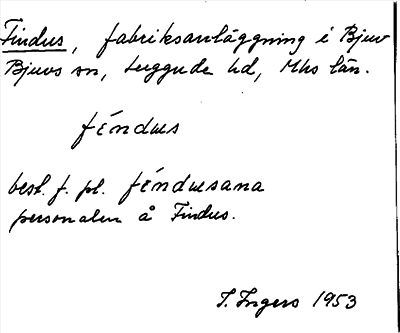 Findus, fabriksanläggning i Bjuv
Bjuvs sn, Luggude hd, Mhs län.
féndus
best. f. pl. féndusana
personalen å Findus.
I. Ingers 1953